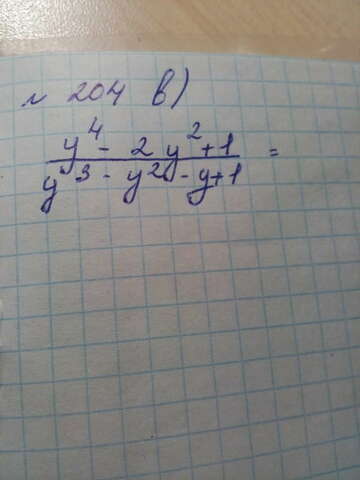 № 204 в)
y⁴ - 2y² + 1
y³ - y² - y + 1 =